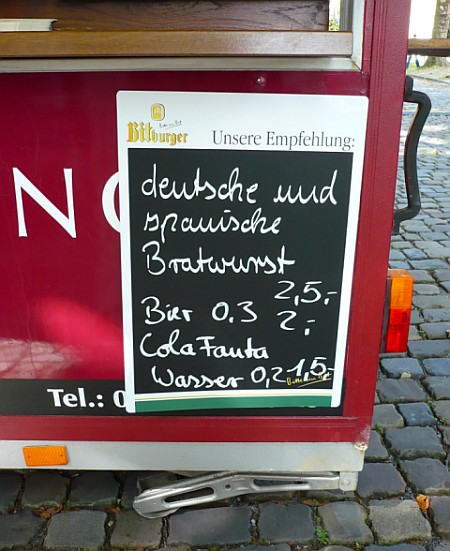 Bitburger
Unsere Empfehlung:
deutsche und
spanische
Bratwurst
2,5,-
Bier 0.3 2,-
Cola Fanta
Wasser 0,2 1,5,-
N
Tel.: 0